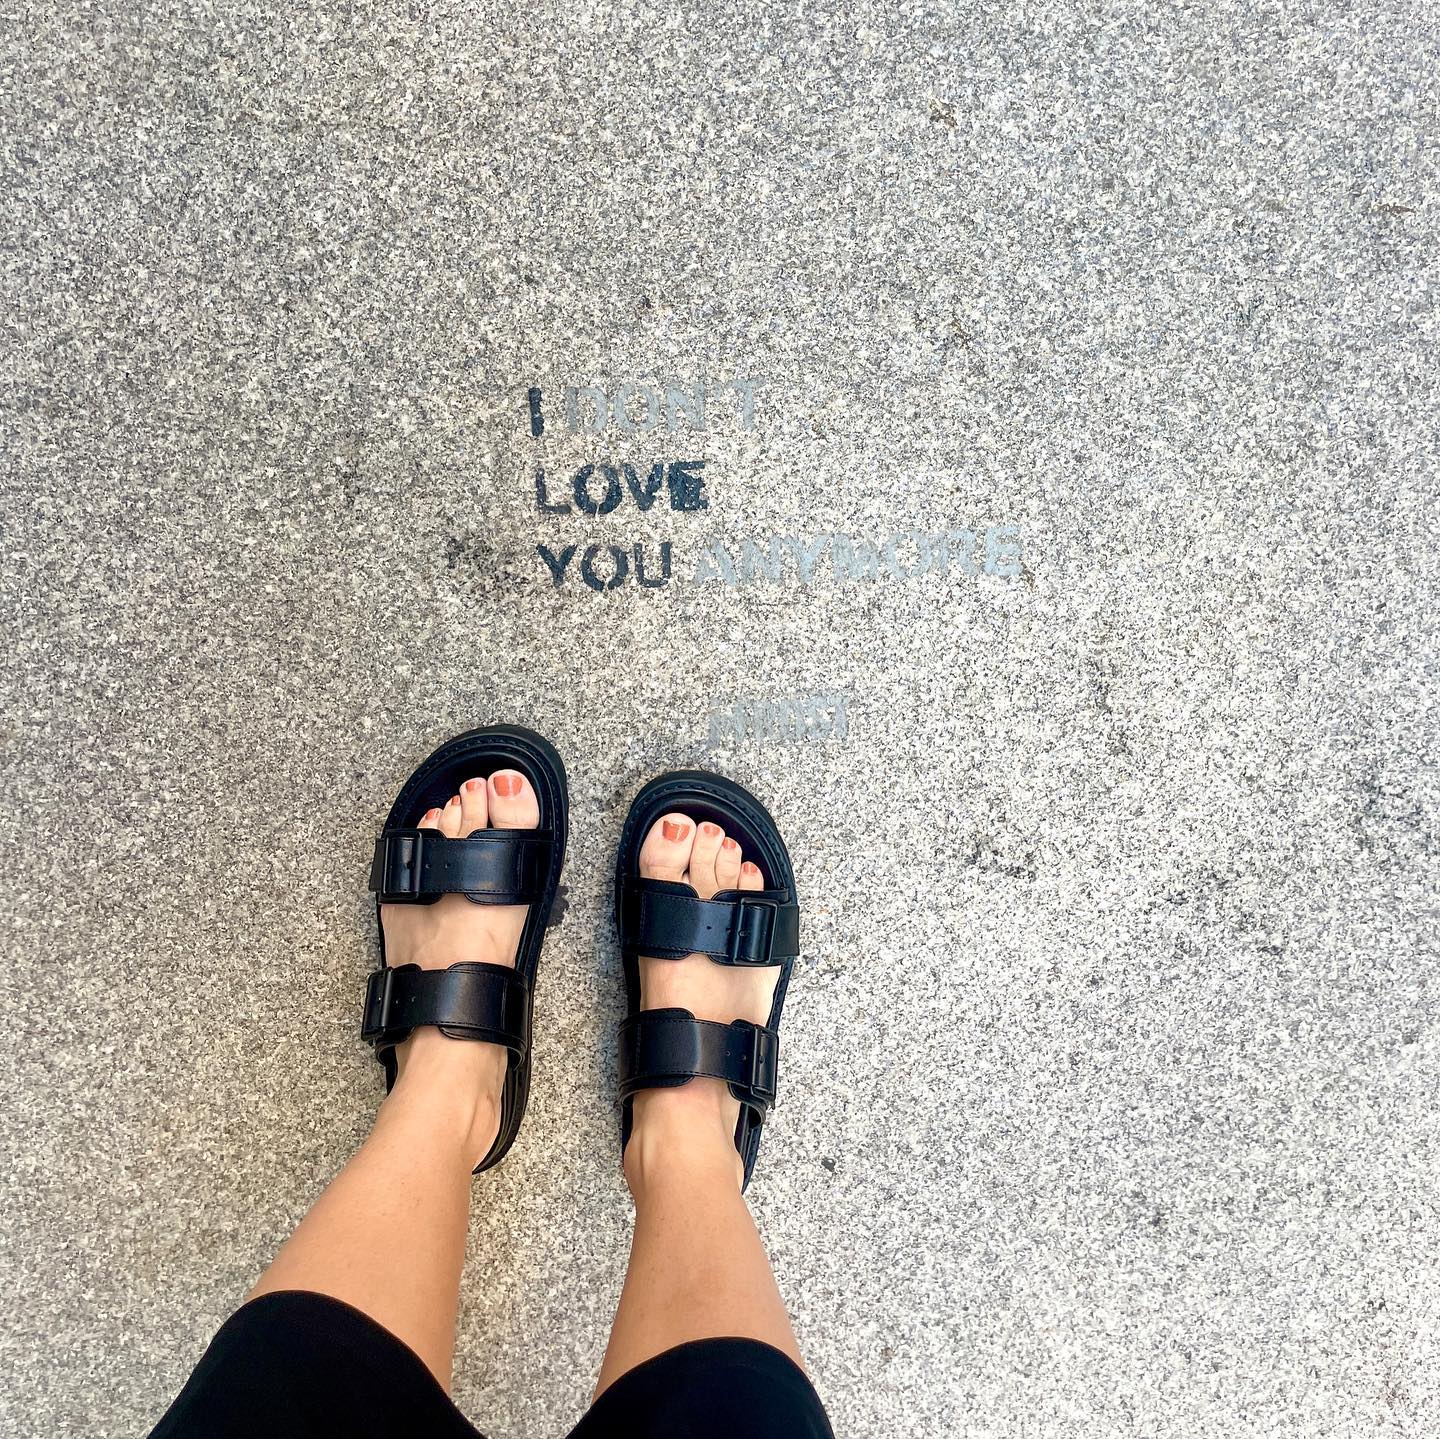 I DON'T
LOVE
YOU ANYMORE